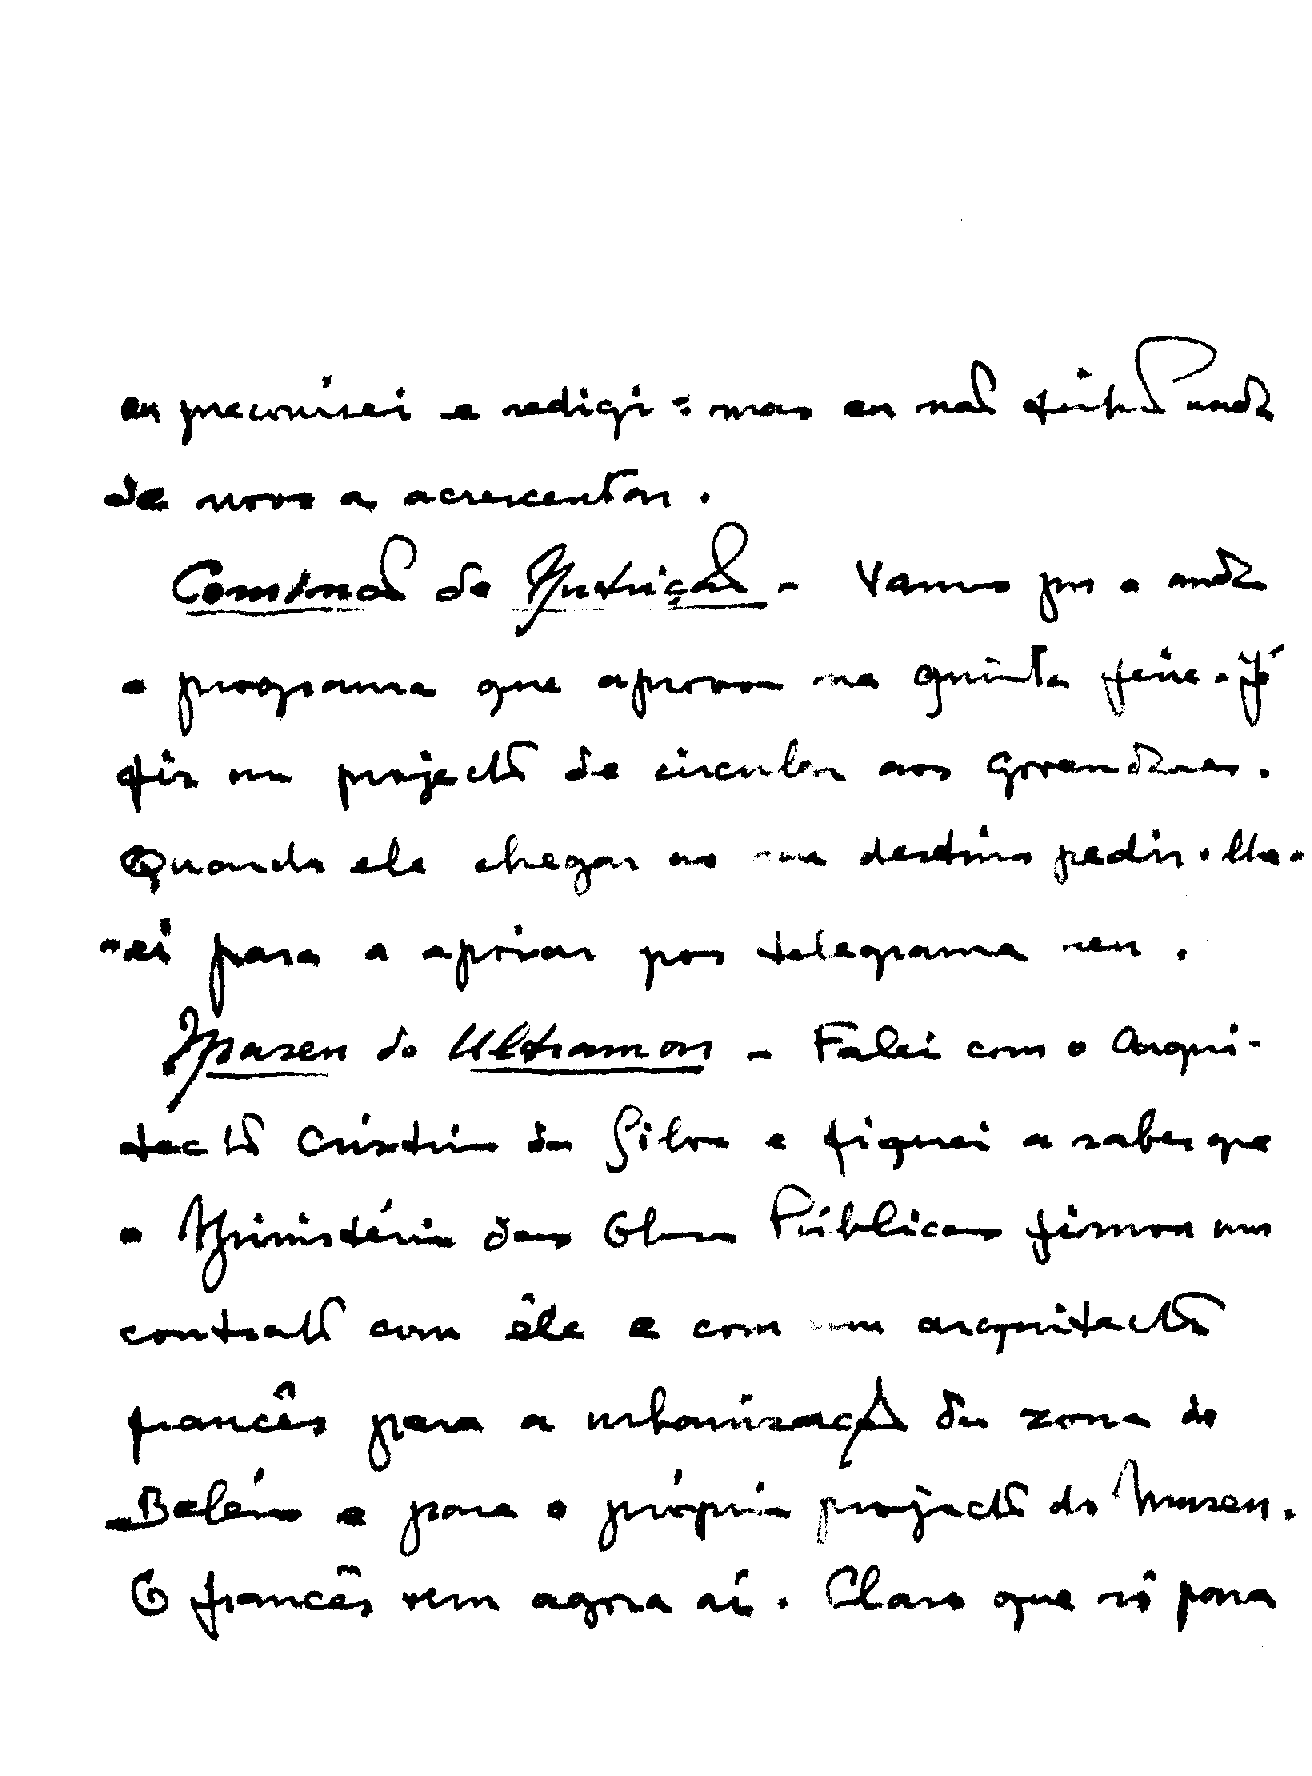 eu preconisei e redigi: mas eu não tinha nada
de novo a acrescentar.
Comissão de Nutrição - Vamos pôr a andar
o programa que aprovou na quinta feira. Já
fiz um projecto de circular aos Governadores.
Quando ela chegar ao seu destino pedir-lhe-
-ei para a apoiar por telegrama seu.
Museu do Ultramar - Falei com o Arqui-
tecto Cristino da Silva e fiquei a saber que
o Ministério das Obras Públicas firmou um
contrato com êle e com um arquitecto
francês para a urbanização da zona de
Belém e para o próprio projecto do Museu.
O francês vem agora aí. Claro que só para